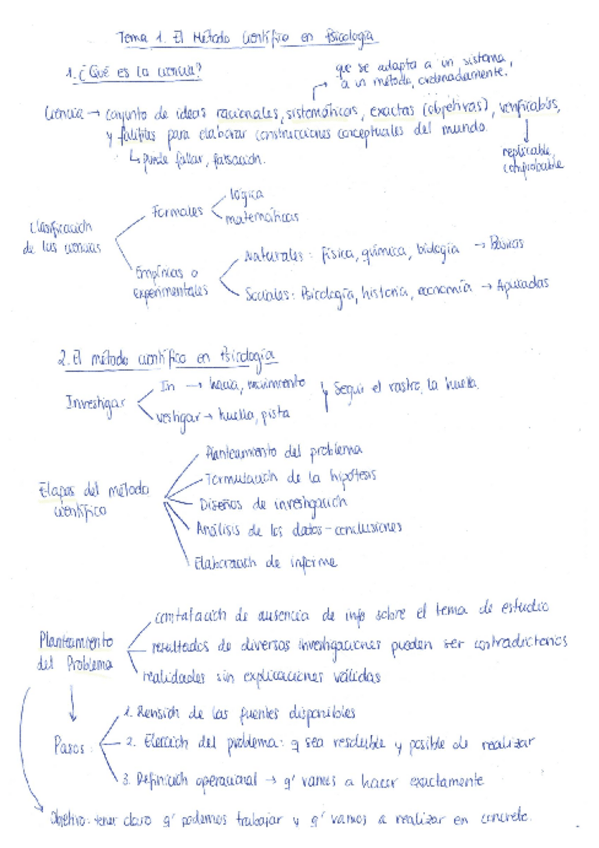 Tema 1. El Método Científico en Psicología
1. ¿Qué es la ciencia?
que se adapta a un sistema,
a un método, ordenadamente.
Ciencia → conjunto de ideas racionales, sistemáticas, exactas (objetivas), verificables,
y falibles para elaborar construcciones conceptuales del mundo.
↳ puede fallar, falsación.
replicable,
comprobable
Clasificación
de las ciencias
Formales
lógica
matemáticas
Empíricas o
experimentales
Naturales: física, química, biología → Básicas
Sociales: Psicología, historia, economía → Aplicadas
2. El método científico en Psicología
Investigar
In → hacia, movimiento
vestigar → huella, pista
Seguir el rastro, la huella.
Etapas del método
científico
Planteamiento del problema
Formulación de la hipótesis
Diseños de investigación
Análisis de los datos - conclusiones
Elaboración de informe
Planteamiento
del Problema
contatación de ausencia de info sobre el tema de estudio
resultados de diversas investigaciones pueden ser contradictorios
realidades sin explicaciones válidas
Pasos:
1. Revisión de las fuentes disponibles
2. Elección del problema: q sea resoluble y posible de realizar
3. Definición operacional → q' vamos a hacer exactamente
Objetivo: tener claro q' podemos trabajar y q' vamos a realizar en concreto.